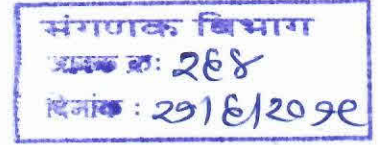 संगणक विभाग
क्र: २६४
दिनांक : २१/६/२०१९